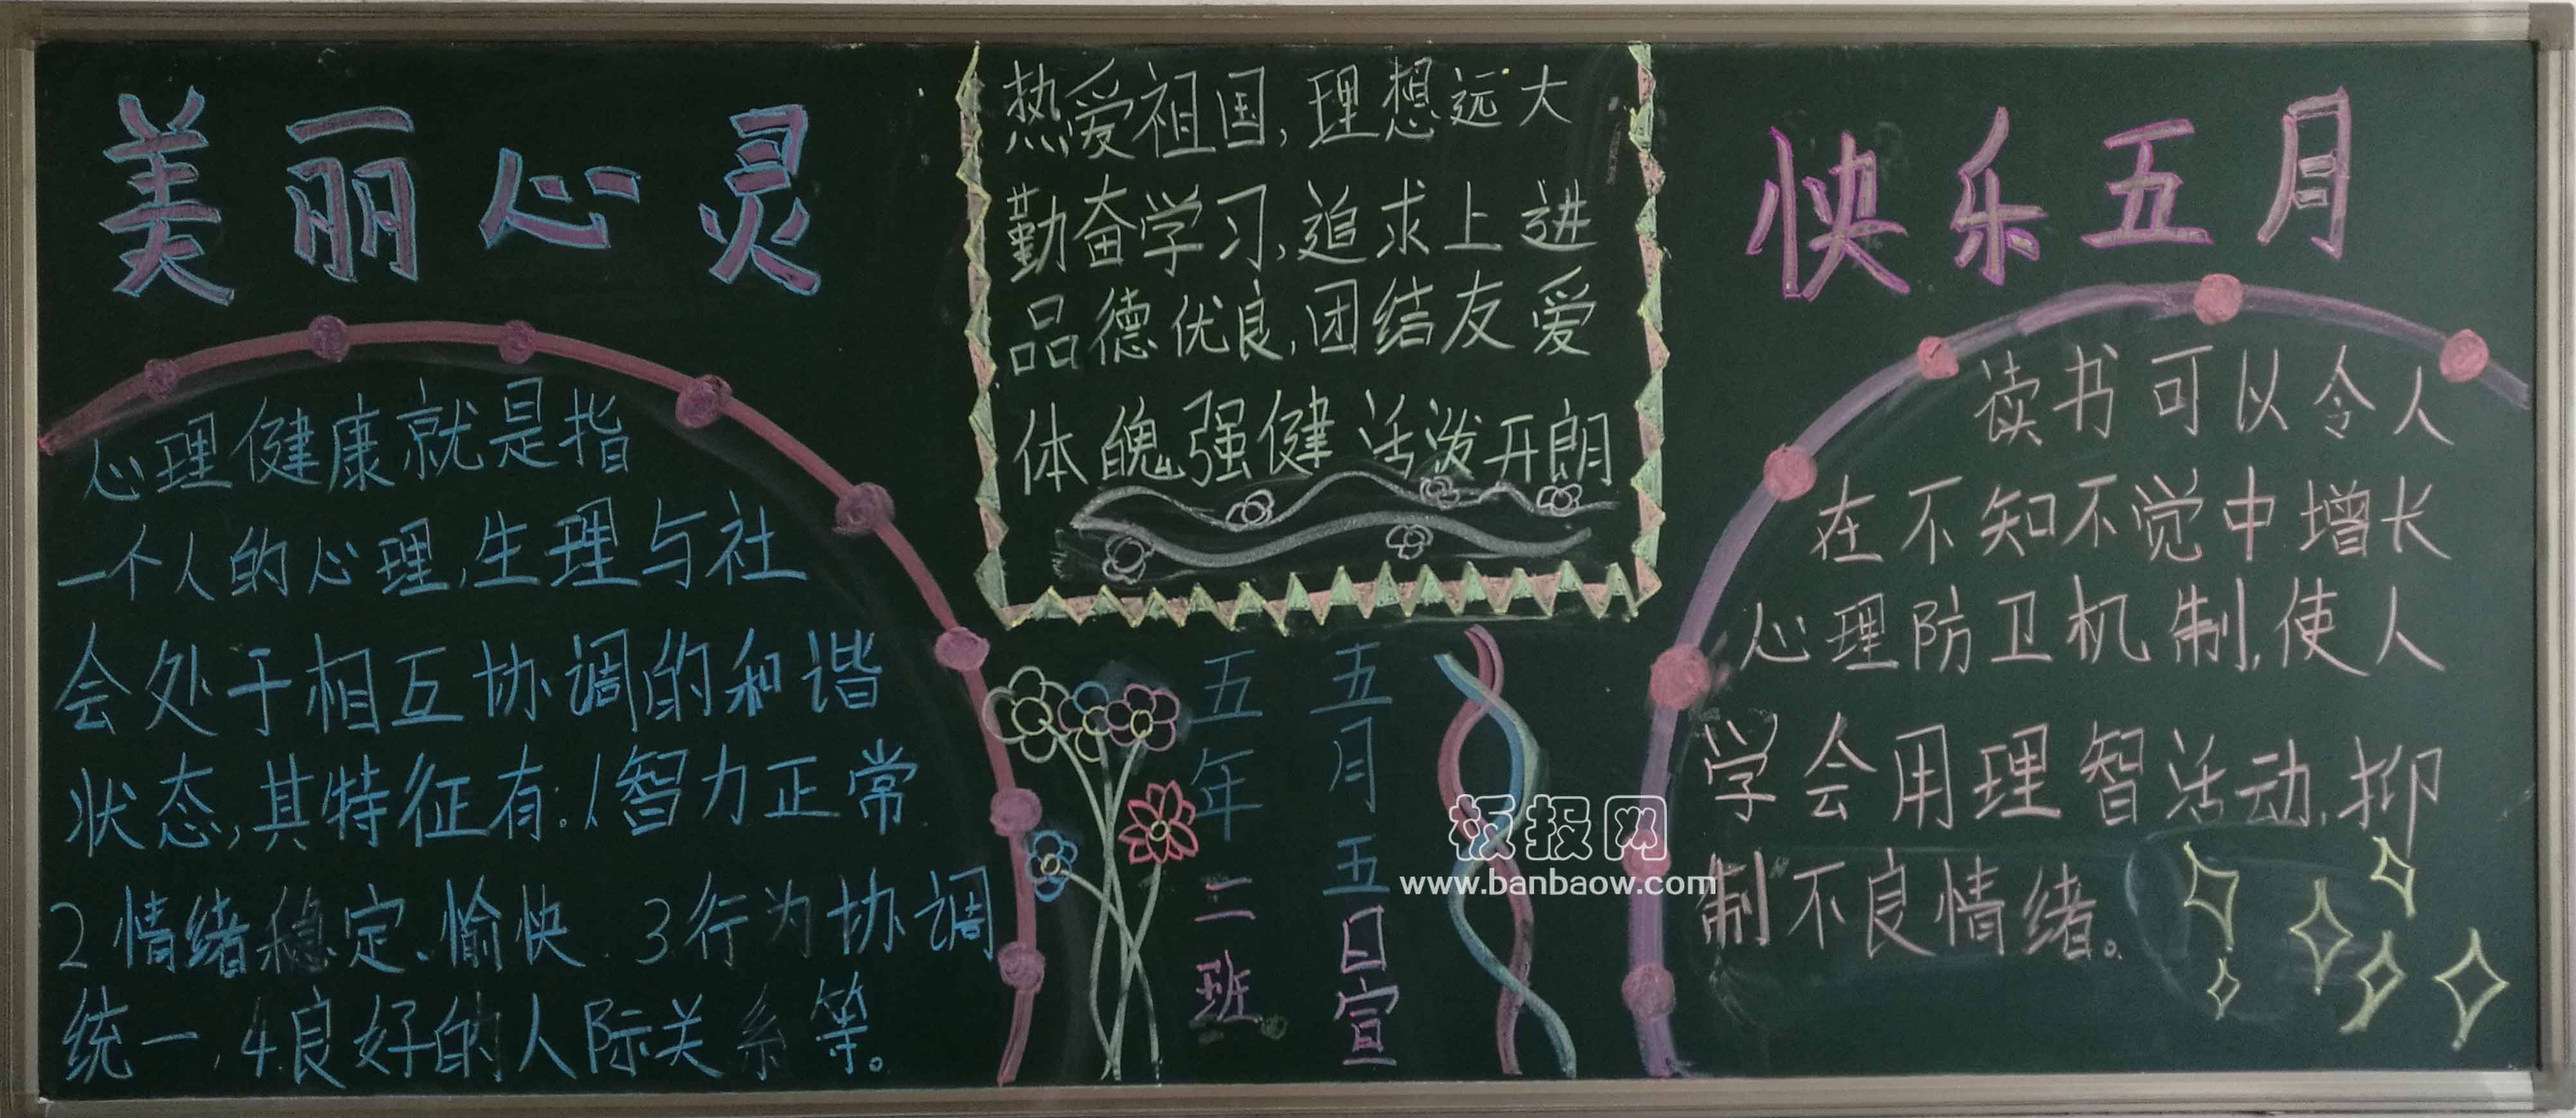 美丽心灵
心理健康就是指
一个人的心理,生理与社
会处于相互协调的和谐
状态,其特征有:1智力正常
2情绪稳定、愉快.3行为协调
统一,4良好的人际关系等。
热爱祖国,理想远大
勤奋学习,追求上进
品德优良,团结友爱
体魄强健 活泼开朗
五年二班
五月五日宣
快乐五月
读书可以令人
在不知不觉中增长
心理防卫机制,使人
学会用理智活动,抑
制不良情绪。
板报网
www.banbaow.com